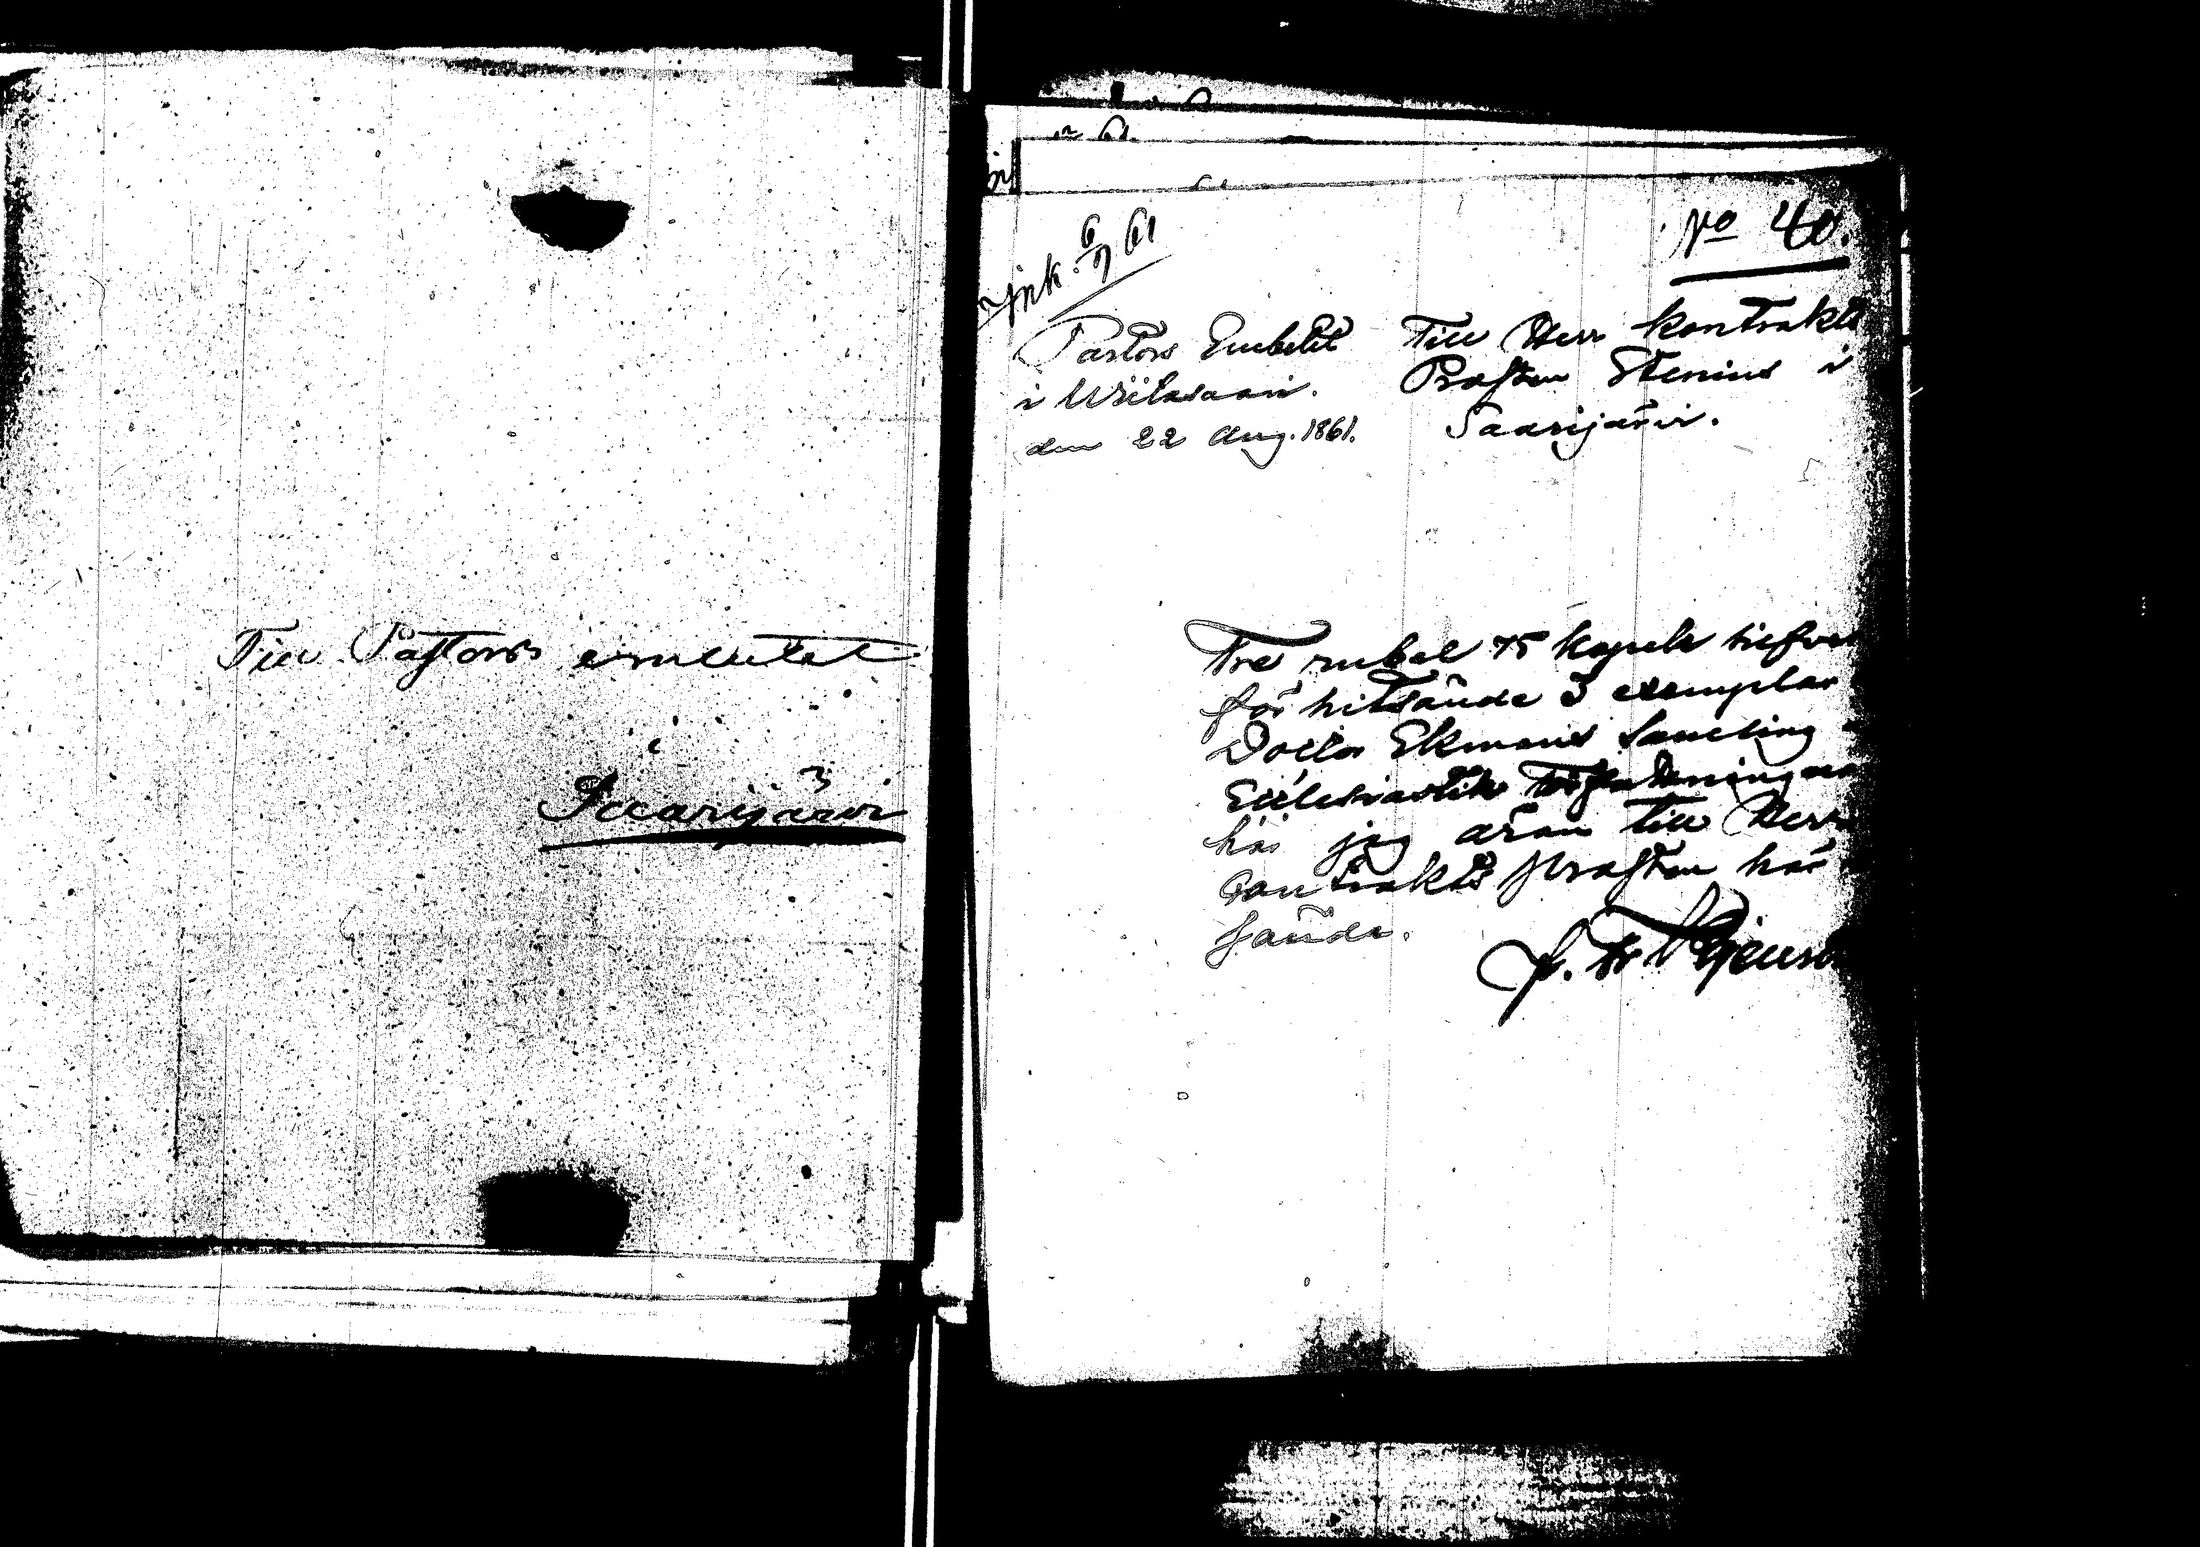 Till Pastors embetet
i
Saarijärvi
No 40.
Ink. 6/9 61
Pastors Embetet
i Wiitasaari.
den 22 Aug. 1861.
Till Herr Kontrakts
Prosten Stenius i
Saarijärvi.
Tre rubel 75 kopek silfver
för hitsände 3 exemplar
Doctor Ekmans Samling
Ecclesiastik författningar
här jag äran till Herr
Contrakts Prosten här
sända.